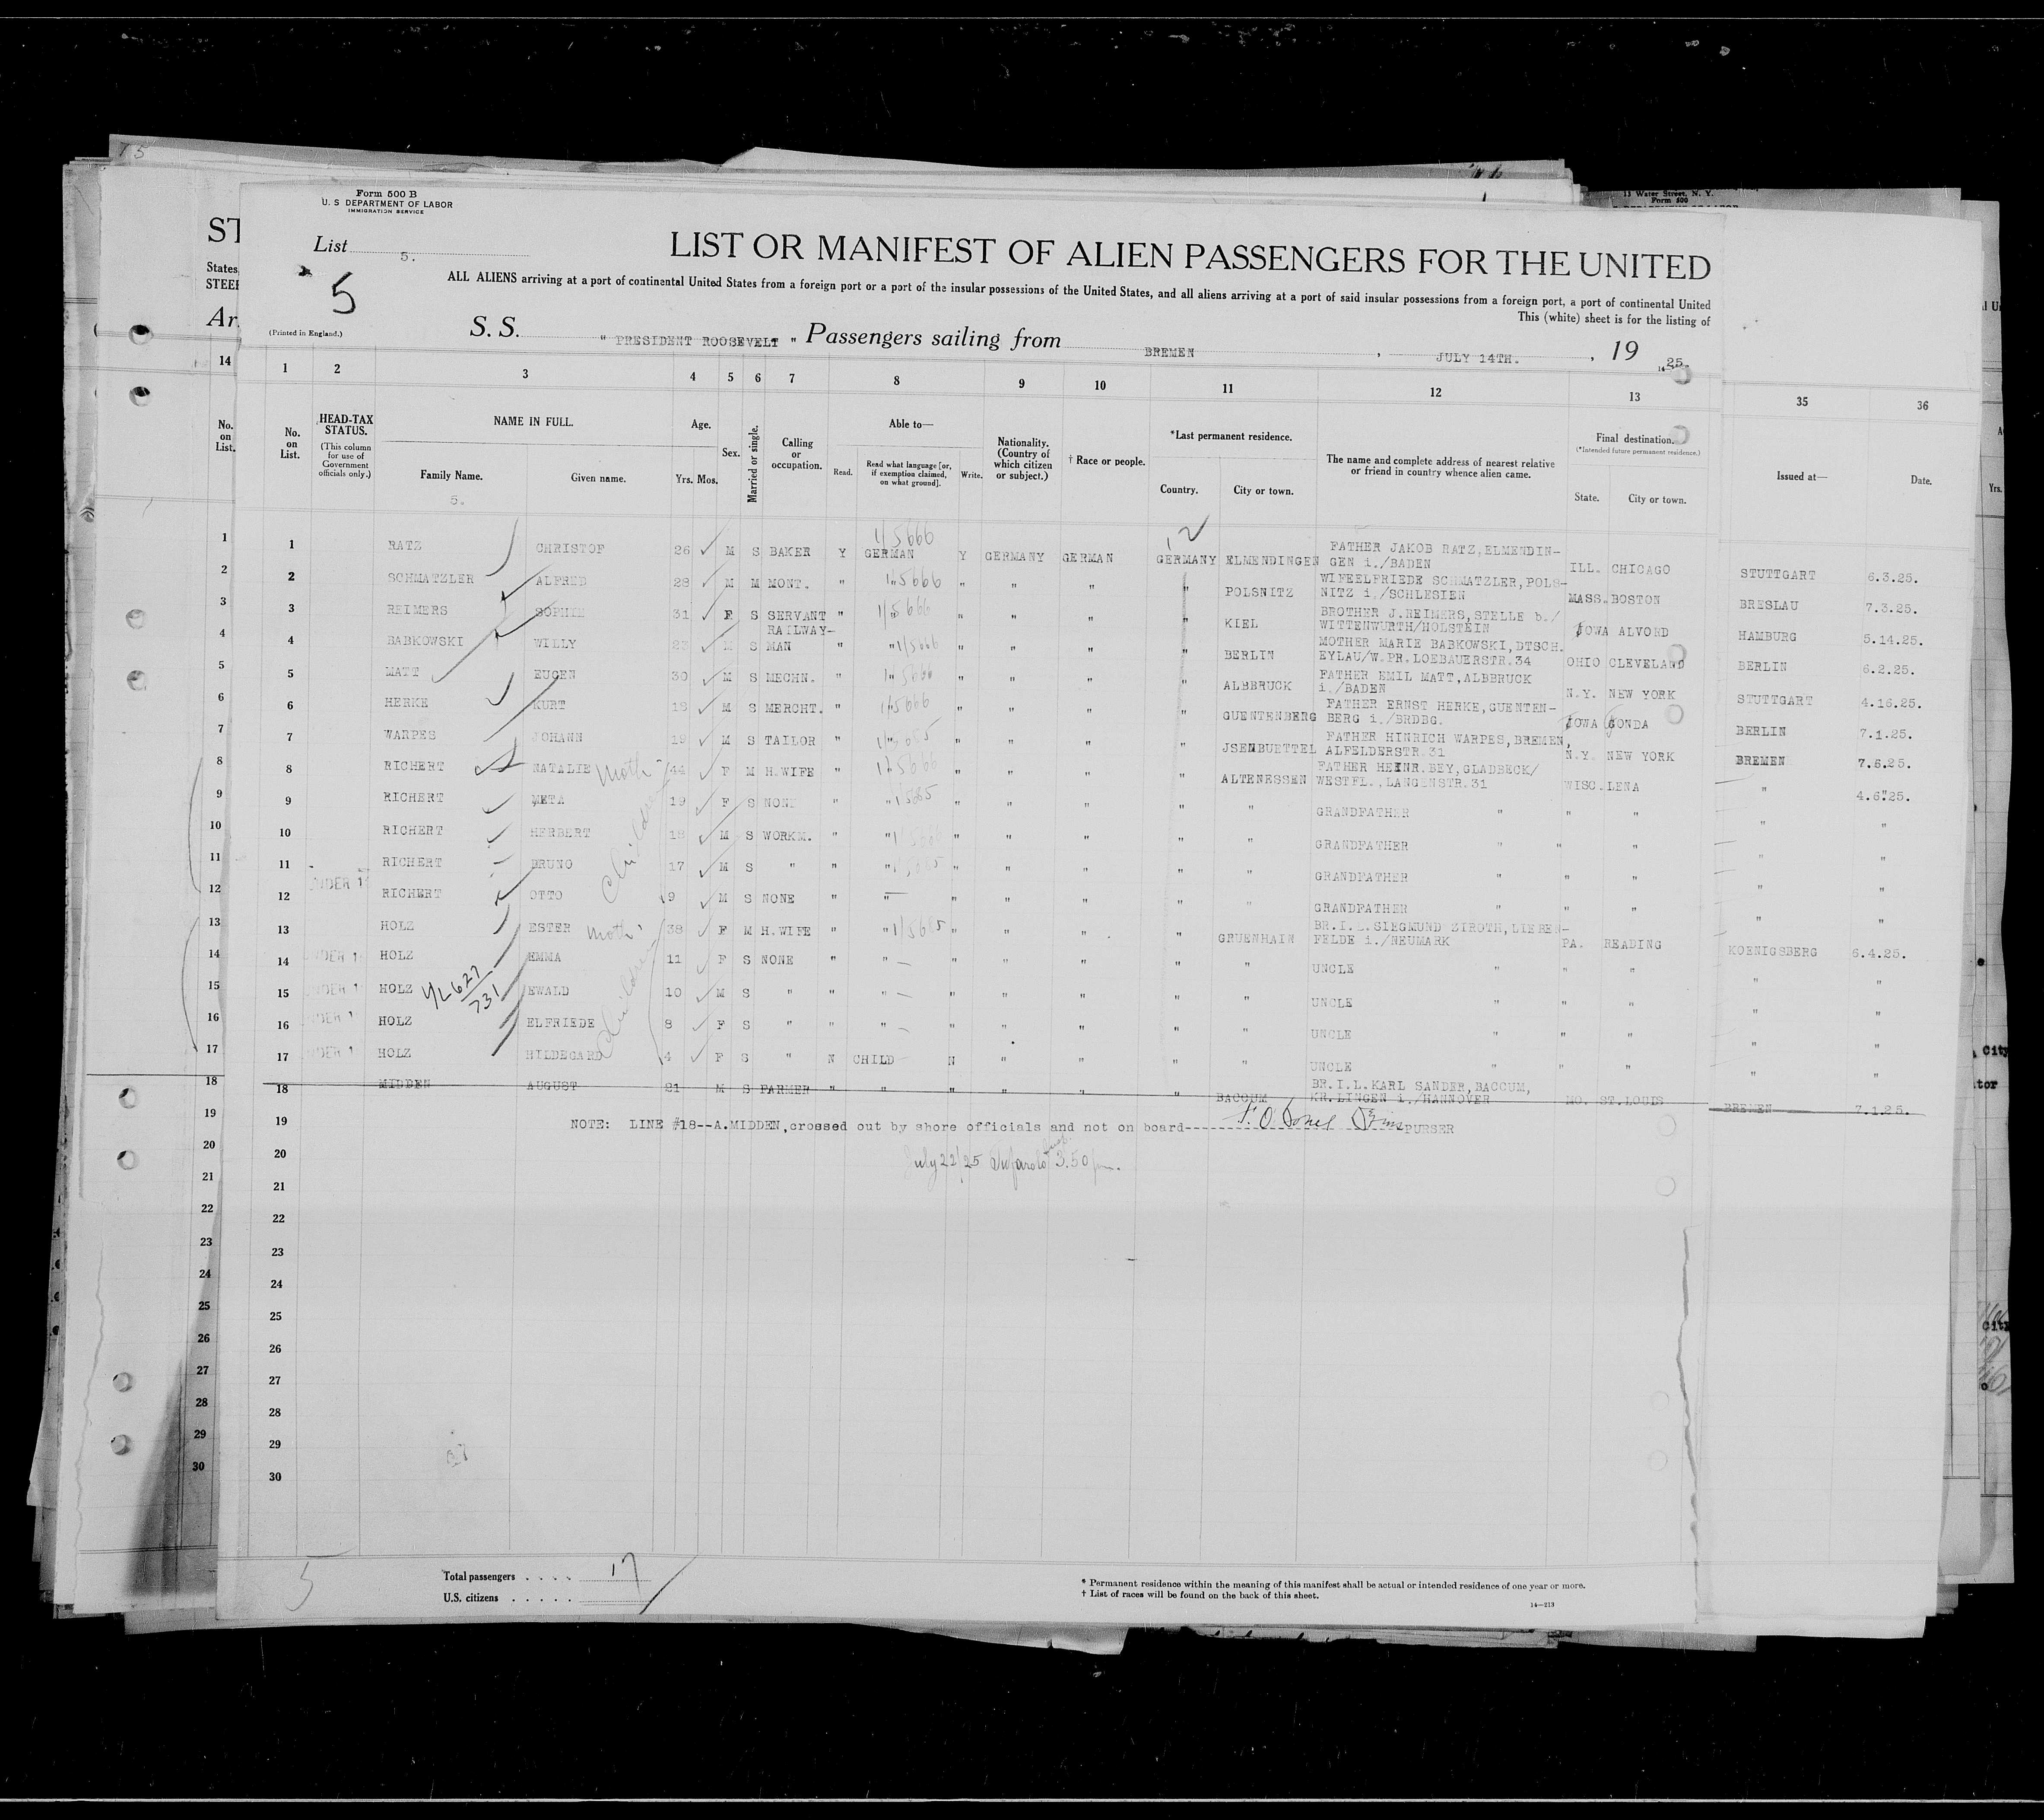 Form 500 B
U. S DEPARTMENT OF LABOR
IMMIGRATION SERVICE
13 Water Street, N. Y.
Form 500
ST
List 5.
LIST OR MANIFEST OF ALIEN PASSENGERS FOR THE UNITED
States,
STEER
5
ALL ALIENS arriving at a port of continental United States from a foreign port or a port of the insular possessions of the United States, and all aliens arriving at a port of said insular possessions from a foreign port, a port of continental United
This (white) sheet is for the listing of
Ar
(Printed in England.)
S. S. " PRESIDENT ROOSEVELT " Passengers sailing from BREMEN , JULY 14TH. , 19 25.
14 1 2 3 4 5 6 7 8 9 10 11 12 13 35 36
No. on List.
No. on List.
HEAD-TAX STATUS.
(This column for use of Government officials only.)
NAME IN FULL.
Family Name.
5.
Given name.
Age.
Yrs. Mos.
Sex.
Married or single.
Calling or occupation.
Able to—
Read.
Read what language [or, if exemption claimed, on what ground].
Write.
Nationality. (Country of which citizen or subject.)
† Race or people.
*Last permanent residence.
Country.
City or town.
The name and complete address of nearest relative or friend in country whence alien came.
Final destination.
(*Intended future permanent residence.)
State.
City or town.
Issued at—
Date.
Yrs.
1 1 RATZ CHRISTOF 26 M S BAKER Y GERMAN Y GERMANY GERMAN GERMANY ELMENDINGEN FATHER JAKOB RATZ, ELMENDIN-
GEN i./BADEN ILL. CHICAGO STUTTGART 6.3.25.
2 2 SCHMATZLER ALFRED 28 M M MONT. " " " " " " POLSNITZ WIFEELFRIEDE SCHMATZLER, POLS-
NITZ i./SCHLESIEN MASS. BOSTON BRESLAU 7.3.25.
3 3 REIMERS SOPHIE 31 F S SERVANT " " " " " " KIEL BROTHER J.REIMERS, STELLE b./
WITTENWURTH/HOLSTEIN IOWA ALVORD HAMBURG 5.14.25.
4 4 BABKOWSKI WILLY 23 M S RAILWAY-
MAN " " " " " " BERLIN MOTHER MARIE BABKOWSKI, DTSCH.
EYLAU/W.PR. LOEBAUERSTR.34 OHIO CLEVELAND BERLIN 6.2.25.
5 5 MATT EUGEN 30 M S MECHN. " " " " " " ALBBRUCK FATHER EMIL MATT, ALBBRUCK
i./BADEN N.Y. NEW YORK STUTTGART 4.16.25.
6 6 HERKE KURT 18 M S MERCHT. " " " " " " GUENTENBERG FATHER ERNST HERKE, GUENTEN-
BERG i./BRDBG. IOWA GONDA BERLIN 7.1.25.
7 7 WARPES JOHANN 19 M S TAILOR " " " " " " JSENBUETTEL FATHER HINRICH WARPES, BREMEN,
ALFELDERSTR.31 N.Y. NEW YORK BREMEN 7.6.25.
8 8 RICHERT NATALIE Moth 44 F M H.WIFE " " " " " " ALTENESSEN FATHER HEINR. BEY, GLADBECK/
WESTFL., LANGENSTR.31 WISC. LENA " 4.6.25.
9 9 RICHERT META 19 F S NONE " " " " " " " GRANDFATHER " " " " "
10 10 RICHERT HERBERT 18 M S WORKM. " " " " " " " GRANDFATHER " " " " "
11 11 RICHERT BRUNO 17 M S " " " " " " " " GRANDFATHER " " " " "
12 12 UNDER 1 RICHERT OTTO 9 M S NONE " " " " " " " GRANDFATHER " " " " "
Children
13 13 HOLZ ESTER Moth 38 F M H.WIFE " " " " " " GRUENHAIN BR.I.L. SIEGMUND ZIROTH, LIEBEN-
FELDE i./NEUMARK PA. READING KOENIGSBERG 6.4.25.
14 14 UNDER 1 HOLZ EMMA 11 F S NONE " " " " " " " UNCLE " " " " "
15 15 UNDER 1 HOLZ EWALD 10 M S " " " " " " " " UNCLE " " " " "
16 16 UNDER 1 HOLZ ELFRIEDE 8 F S " " " " " " " " UNCLE " " " " "
17 17 UNDER 1 HOLZ HILDEGARD 4 F S " N CHILD N " " " " UNCLE " " " " "
Children
18 18 MIDDEN AUGUST 21 M S FARMER " " " " " " BACCUM BR.I.L. KARL SANDER, BACCUM,
KR. LINGEN i./HANNOVER MO. ST.LOUIS BREMEN 7.1.25.
19 19 NOTE: LINE #18--A.MIDDEN, crossed out by shore officials and not on board PURSER
20 20 July 22/25 3.50 pm.
21 21
22 22
23 23
24 24
25 25
26 26
27 27
28 28
29 29
30 30
5
Total passengers . . . . 17
U.S. citizens . . . . .
* Permanent residence within the meaning of this manifest shall be actual or intended residence of one year or more.
† List of races will be found on the back of this sheet.
14—213